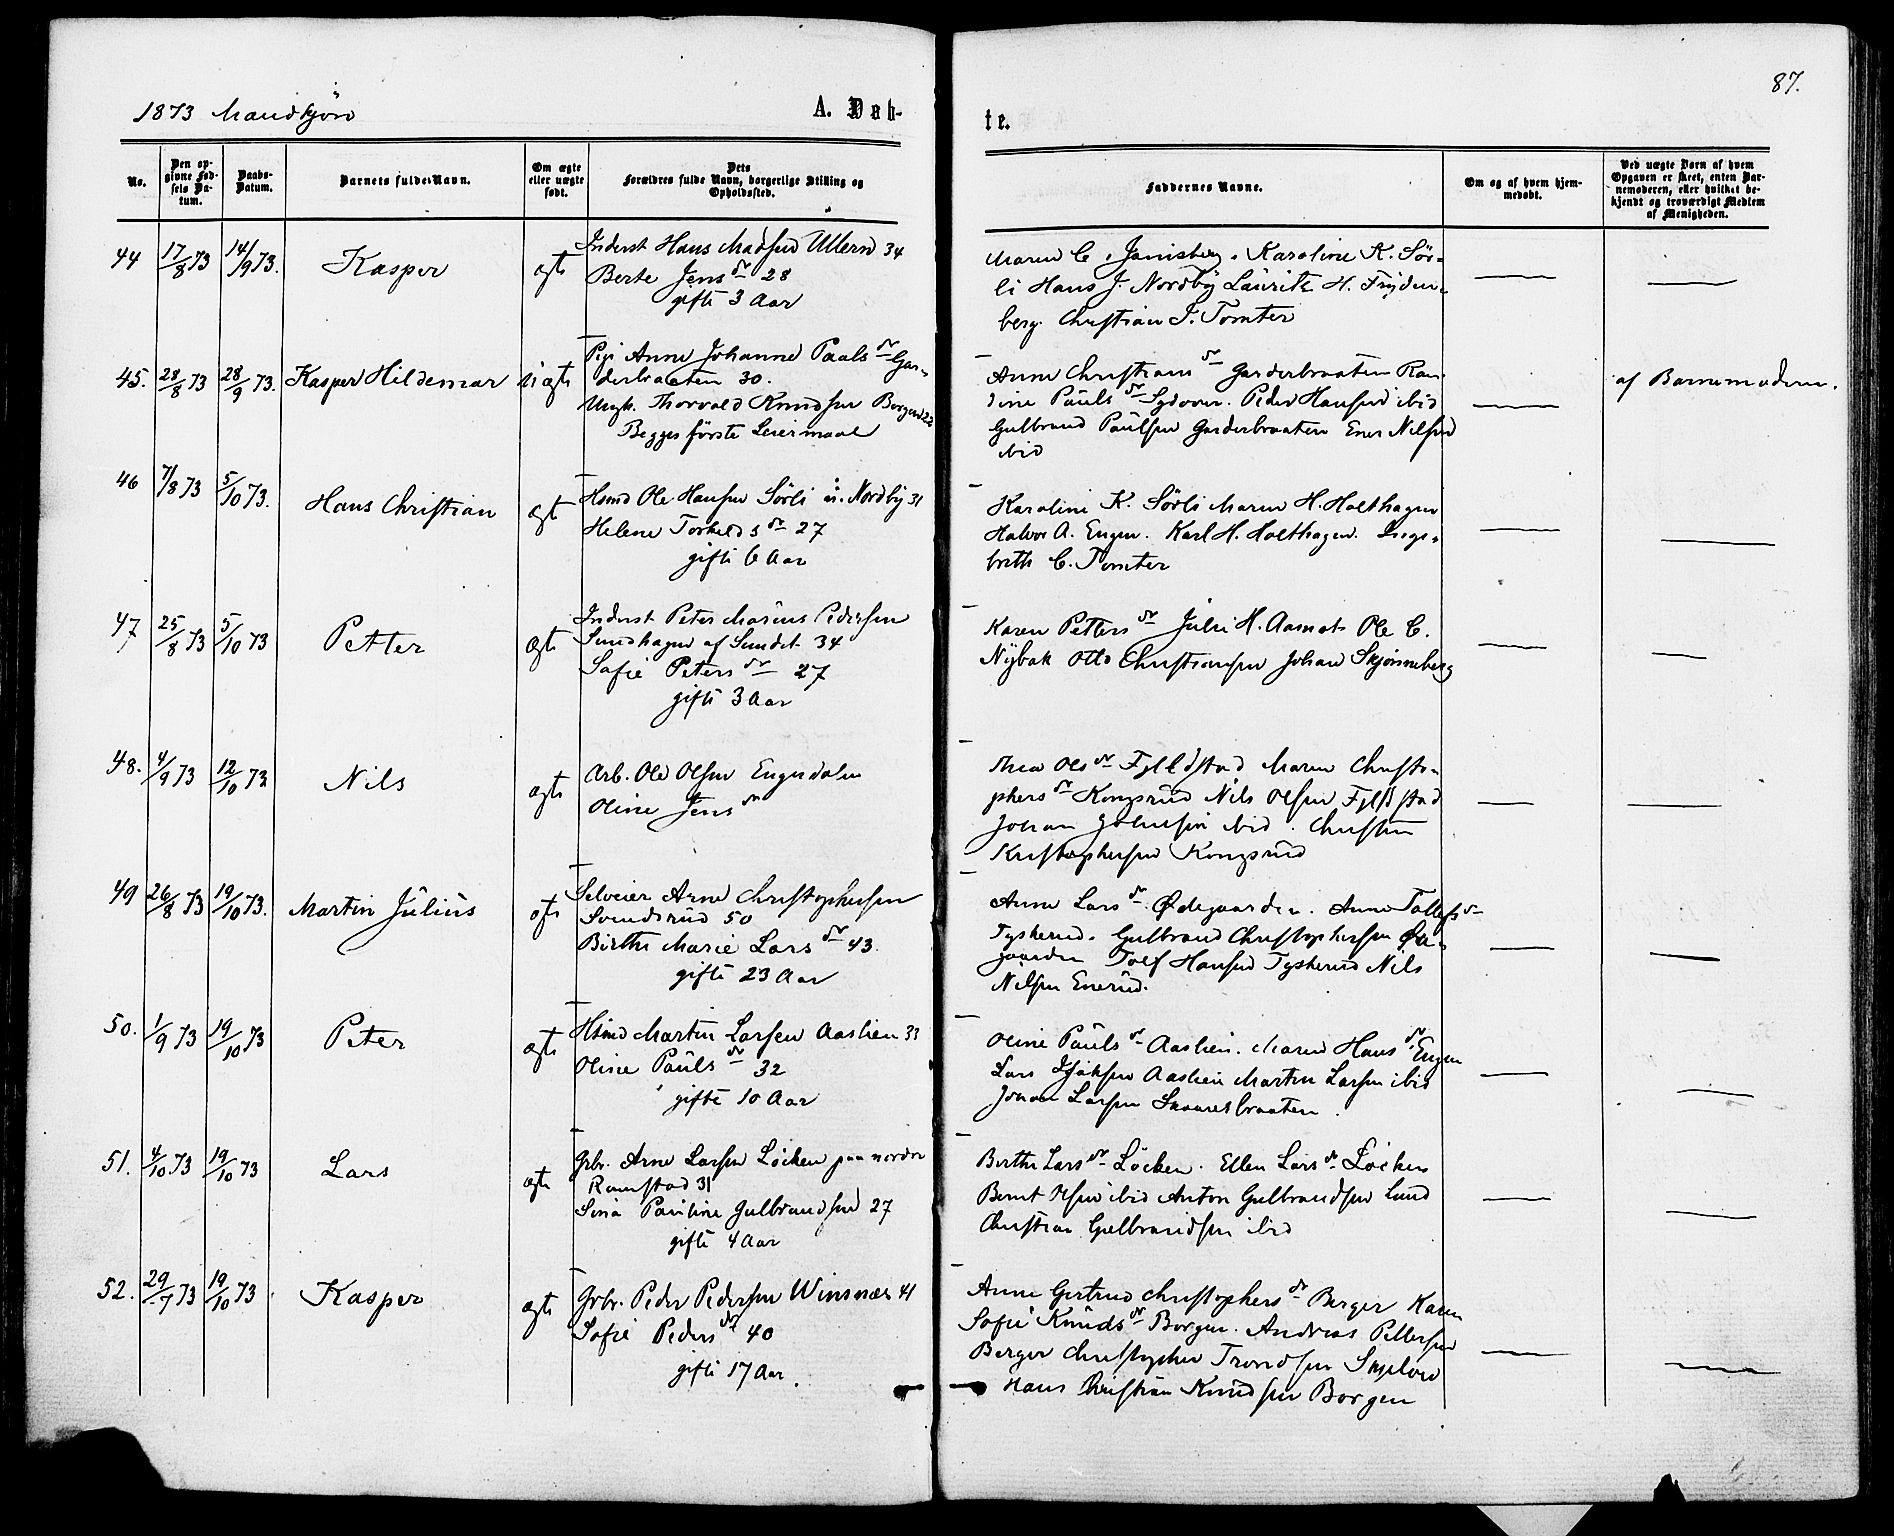 87.
1873 Mandkjøn
A. Døb-
te.
No.
Den opgivne Fødsels Datum.
Daabs-Datum.
Barnets fulde Navn.
Om ægte eller uægte født.
Dets Forældres fulde Navn, borgerlige Stilling og Opholdssted.
Faddernes Navne.
Om og af hvem hjemmedøbt.
Ved uægte Børn af hvem Opgaven er skeet, enten Barnemoderen, eller hvilket bekjendt og troværdigt Medlem af Menigheden.
44 17/8 73 14/9 73. Kasper ægte
Inderst Hans Madsen Ullern 34
Berte Jensdr 28
gifte 3 Aar
Maren C. Karoline K. Sör-
li Hans J. Nordby Lauritz H. Fryden-
berg. Christian J. Tomter
45. 28/8 73 28/9 73. Kasper Hildemar uægte
Pige Anne Johanne Paalsdr Gar-
derbraaten 30.
Ungk. Thorvald Knudsen Borgen 22
Begges förste Leiermaal
Anne Christiansdr Garderbraaten Ran-
dine Paulsdr Peder Hansen ibid
Gulbrand Paulsen Garderbraaten Ener Nilsen
ibid
af Barnemoderen.
46 7/8 73 5/10 73. Hans Christian ægte
Hsmd Ole Hansen Sörli u. Nordby 31
Helene Torkeldsdr 27
gifte 6 Aar
Karoline K. Sörli Maren H. Holthagen
Halvor A. Engen. Karl H. Holthagen. Inge-
breth C. Tomter
47 25/8 73 5/10 73 Petter ægte
Inderst Peter Marius Pedersen
Sundhagen af Sundet 34
Sofie Petersdr 27
gifte 3 Aar
Karen Pettersdr Julie H. Aamot Ole C.
Nybak Otto Christiansen Johan Skjönneberg
48. 4/9 73 12/10 73 Nils ægte
Arb. Ole Olsen Engerdalen
Oline Jensdr
Thea Olsdr Fjeldstad Maren Christo-
phersdr Kongsrud Nils Olsen Fjeldstad
Johan Johnsen ibid. Christen
Kristophersen Kongsrud
49 26/8 73 19/10 73. Martin Julius ægte
Selveier Arne Christophersen
Svendsrud 50
Birthe Marie Larsdr 43.
gifte 23 Aar
Anne Larsdr Ødegaarden. Anne Tollefsdr
Tyskerud. Gulbrand Christophersen Øde-
gaarden Tolf Hansen Tyskerud Nils
Nilsen Enerud.
50. 1/9 73 19/10 73 Peter ægte
Hsmd Martin Larsen Aaslien 33
Oline Paulsdr 32
gifte 10 Aar
Oline Paulsdr Aaslien. Maren Hansdr Engen
Lars Isaksen Aaslien Martin Larsen ibid
Johan Larsen
51. 4/10 73 19/10 73 Lars ægte
Gbr. Arne Larsen Löcken paa nordre
Ramstad 31
Sina Pauline Gulbrandsen 27
gifte 4 Aar
Berthe Larsdr Löcken. Ellen Larsdr Löcken
Bernt Olsen ibid Anton Gulbrandsen Lund
Christian Gulbrandsen ibid
52. 29/7 73 19/10 73 Kasper ægte
Grbr. Peder Pedersen Winsnæs 41
Sofie Pedersdr 40
gifte 17 Aar.
Anne Gertrud Christophersdr Berger Karen
Sofie Knudsdr Borgen. Andreas Pettersen
Berger Christopher Trondsen
Hans Christian Knudsen Borgen